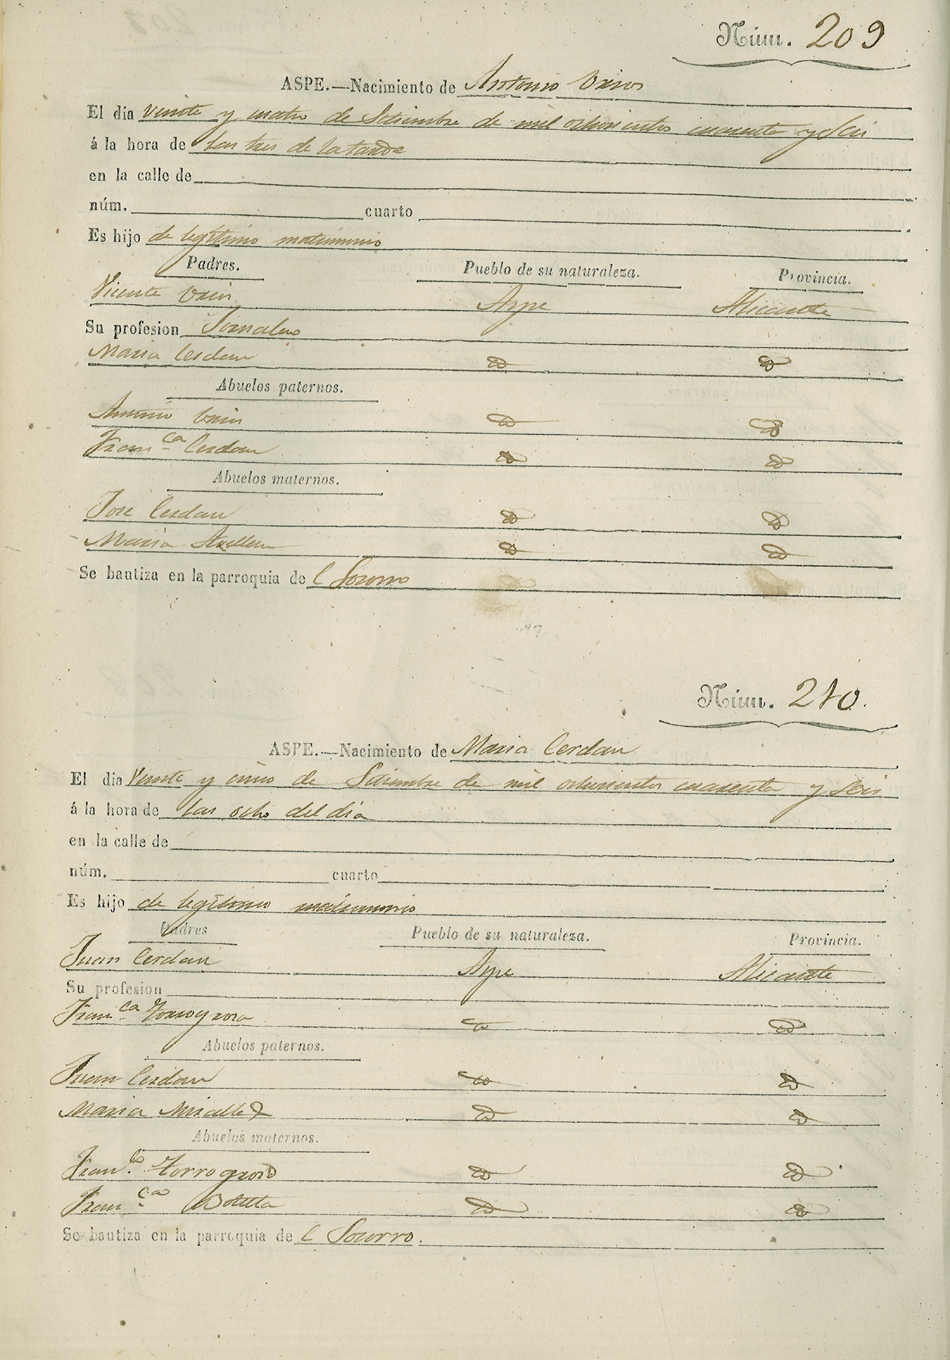 Núm. 209
ASPE.—Nacimiento de Antonio
El dia veinte y cuatro de Setiembre de mil ochocientos cuarenta y Seis
á la hora de las tres de la tarde
en la calle de
núm. cuarto
Es hijo de legitimo matrimonio
Padres. Pueblo de su naturaleza. Provincia.
Vicente Aspe Alicante
Su profesion Jornalero
Maria Cerdan id id
Abuelos paternos.
Antonio id id
Fran.ca Cerdan id id
Abuelos maternos.
Jose Cerdan id id
Maria id id
Se bautiza en la parroquia de l Socorro
Núm. 210.
ASPE.—Nacimiento de Maria Cerdan
El dia Veinte y cinco de Setiembre de mil ochocientos cuarenta y Seis
á la hora de las ocho del dia
en la calle de
núm. cuarto
Es hijo de legitimo matrimonio
Padres Pueblo de su naturaleza. Provincia.
Juan Cerdan Aspe Alicante
Su profesion
Fran.ca Torregrosa id id
Abuelos paternos.
Juan Cerdan id id
Maria Miralles id id
Abuelos maternos.
Fran.co Torregrosa id id
Fran.ca Botella id id
Se bautiza en la parroquia de l Socorro.